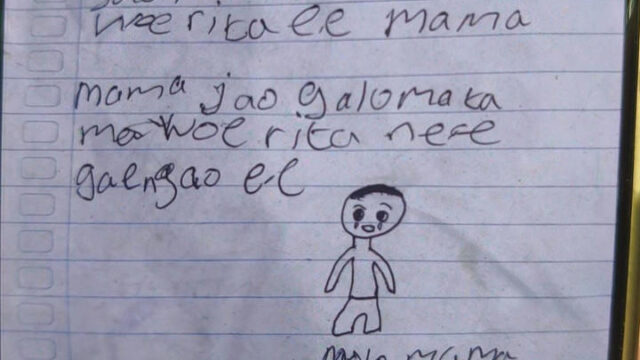 woe rita ee mama
mama jao galo mata
woe rita ne-e
gaengao e-e
mama